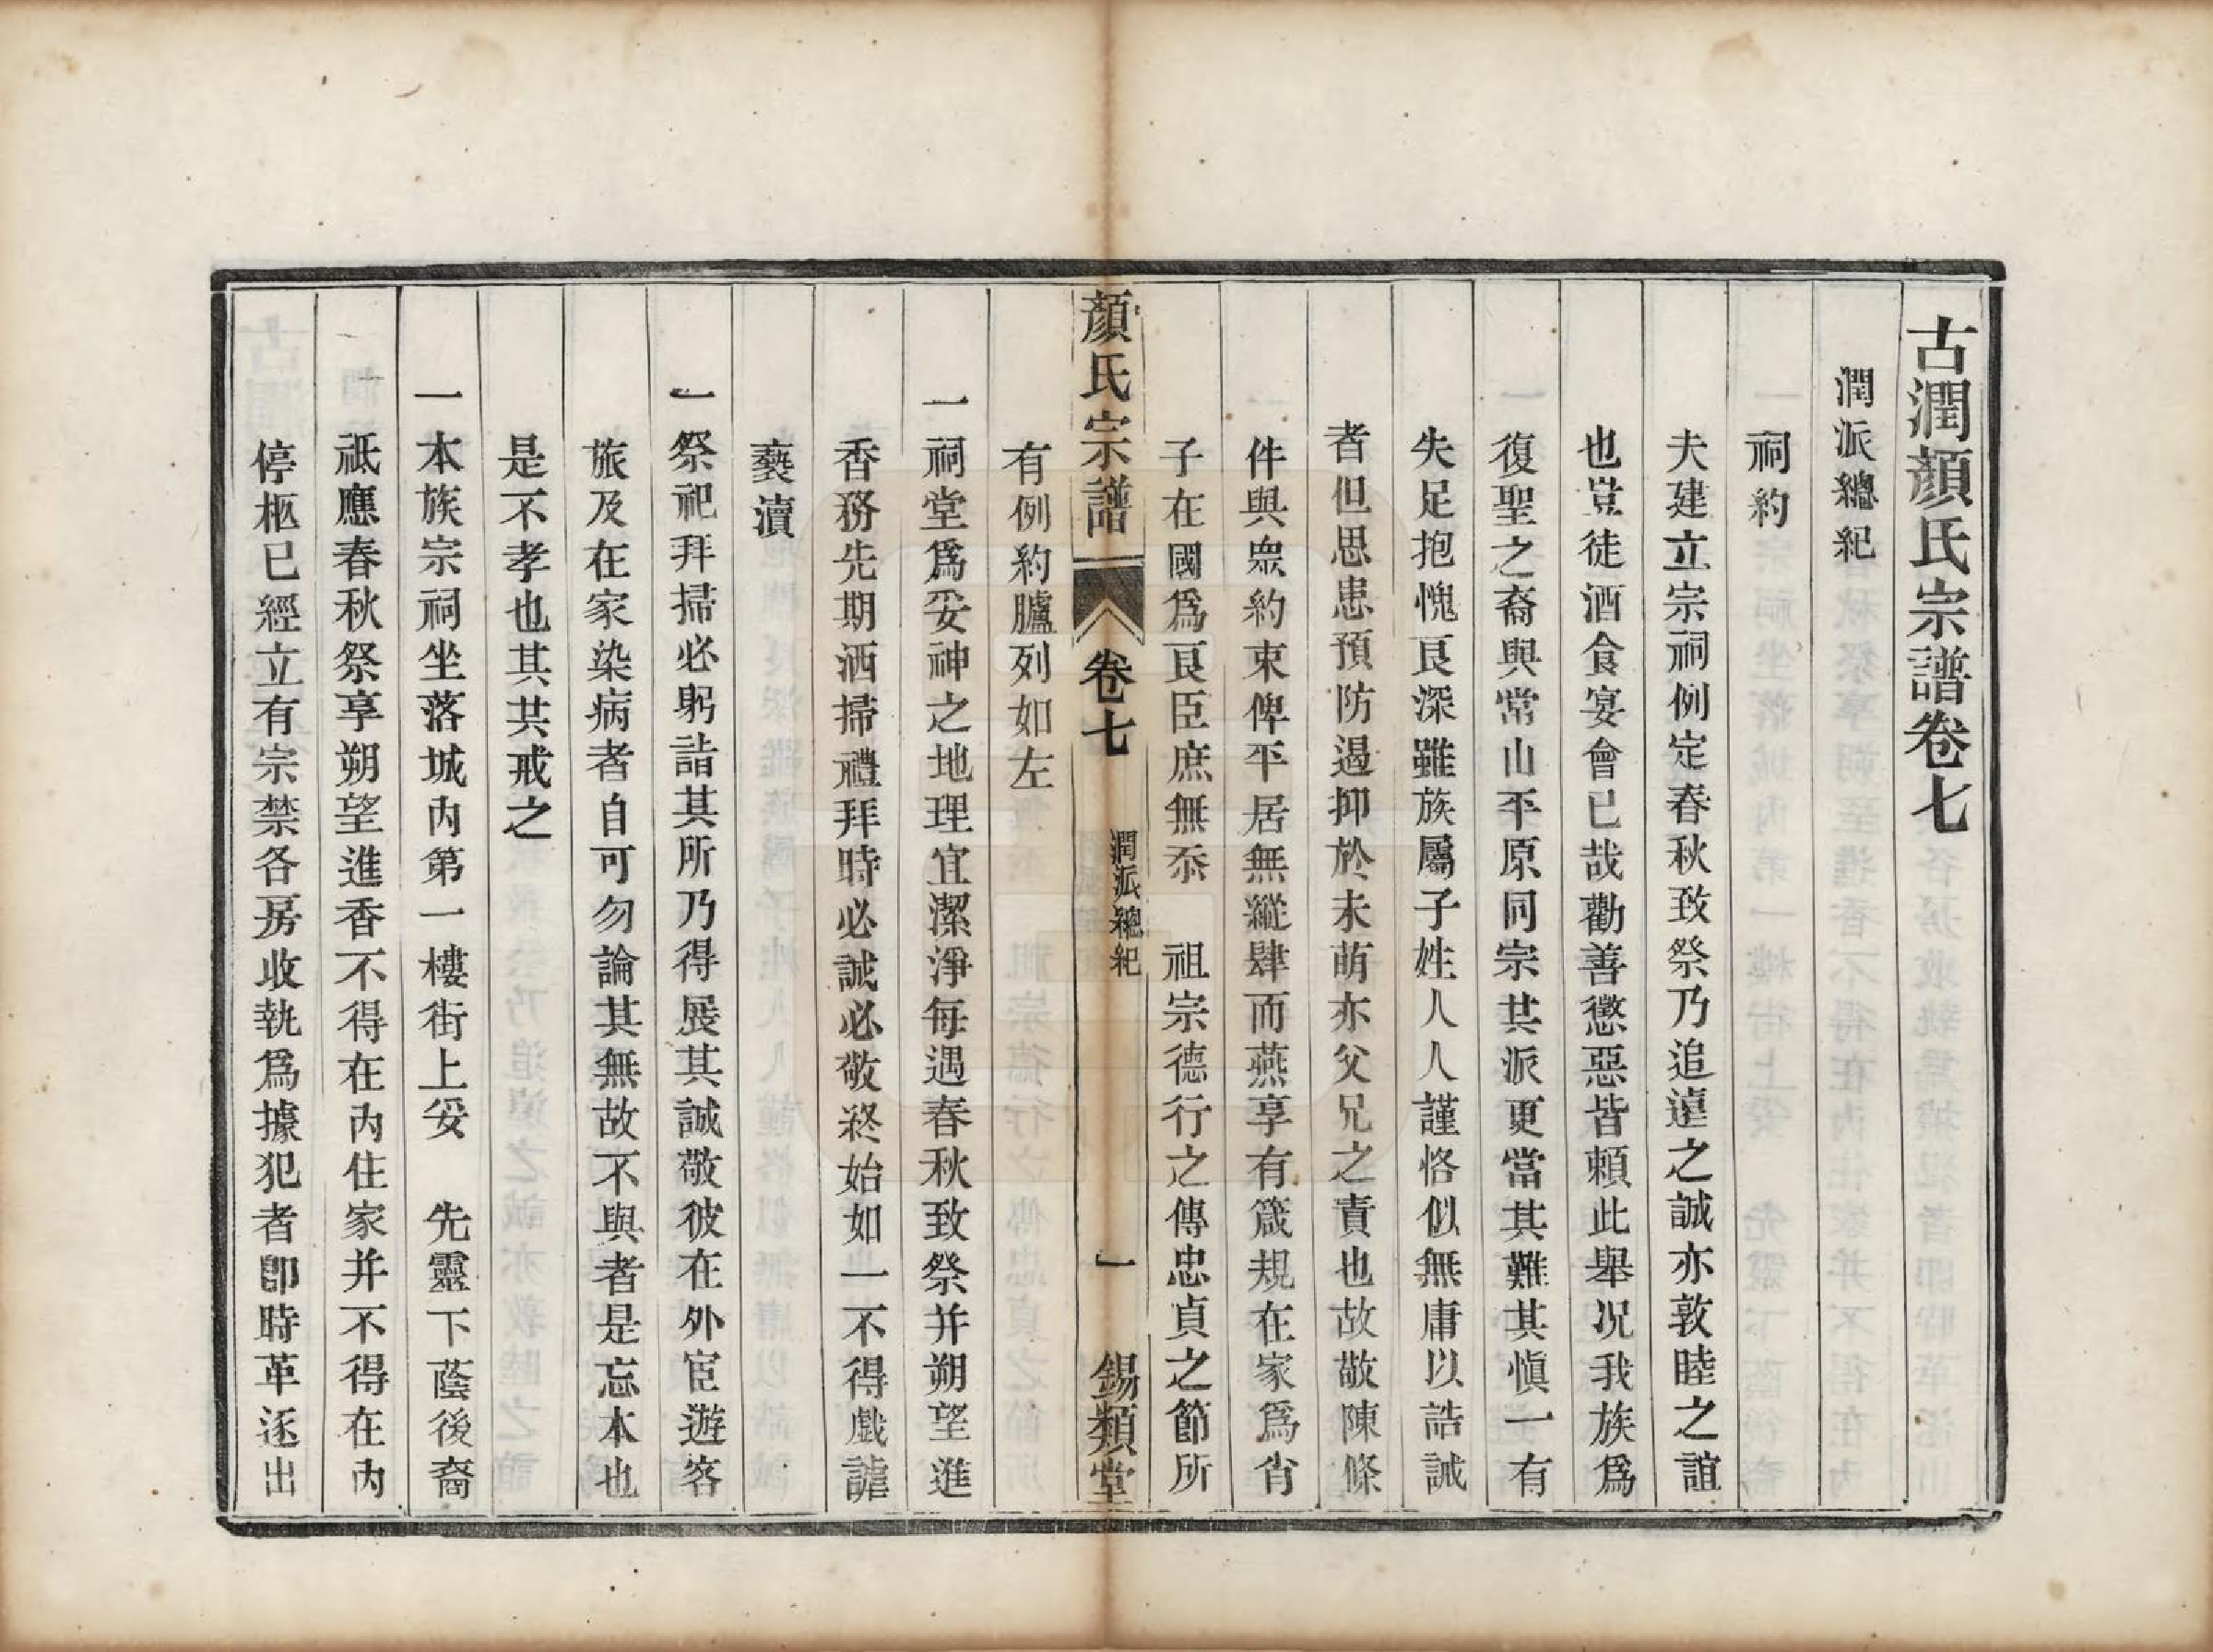 古潤顏氏宗譜卷七
潤派總紀
祠約
夫建立宗祠例定春秋致祭乃追遠之誠亦敦睦之誼
也豈徒酒食宴會已哉勸善懲惡皆賴此舉况我族爲
復聖之裔與常山平原同宗共派更當其難其愼一有
失足抱愧良深雖族屬子姓人人謹恪似無庸以誥誡
者但思患預防遏抑於未萌亦父兄之責也故敬陳條
件與眾約束俾平居無縱肆而燕享有箴規在家爲肖
子在國爲良臣庶無忝　祖宗德行之傳忠貞之節所
顏氏宗譜　卷七　潤派總紀　一　錫類堂
有例約臚列如左
一祠堂爲妥神之地理宜潔淨每遇春秋致祭并朔望進
香務先期洒掃禮拜時必誠必敬終始如一不得戲謔
褻瀆
一祭祀拜掃必躬詣其所乃得展其誠敬彼在外宦遊客
旅及在家染病者自可勿論其無故不與者是忘本也
是不孝也其共戒之
一本族宗祠坐落城內第一樓街上妥　先靈下蔭後裔
祗應春秋祭享朔望進香不得在內住家并不得在內
停柩已經立有宗禁各房收執爲據犯者卽時革逐出